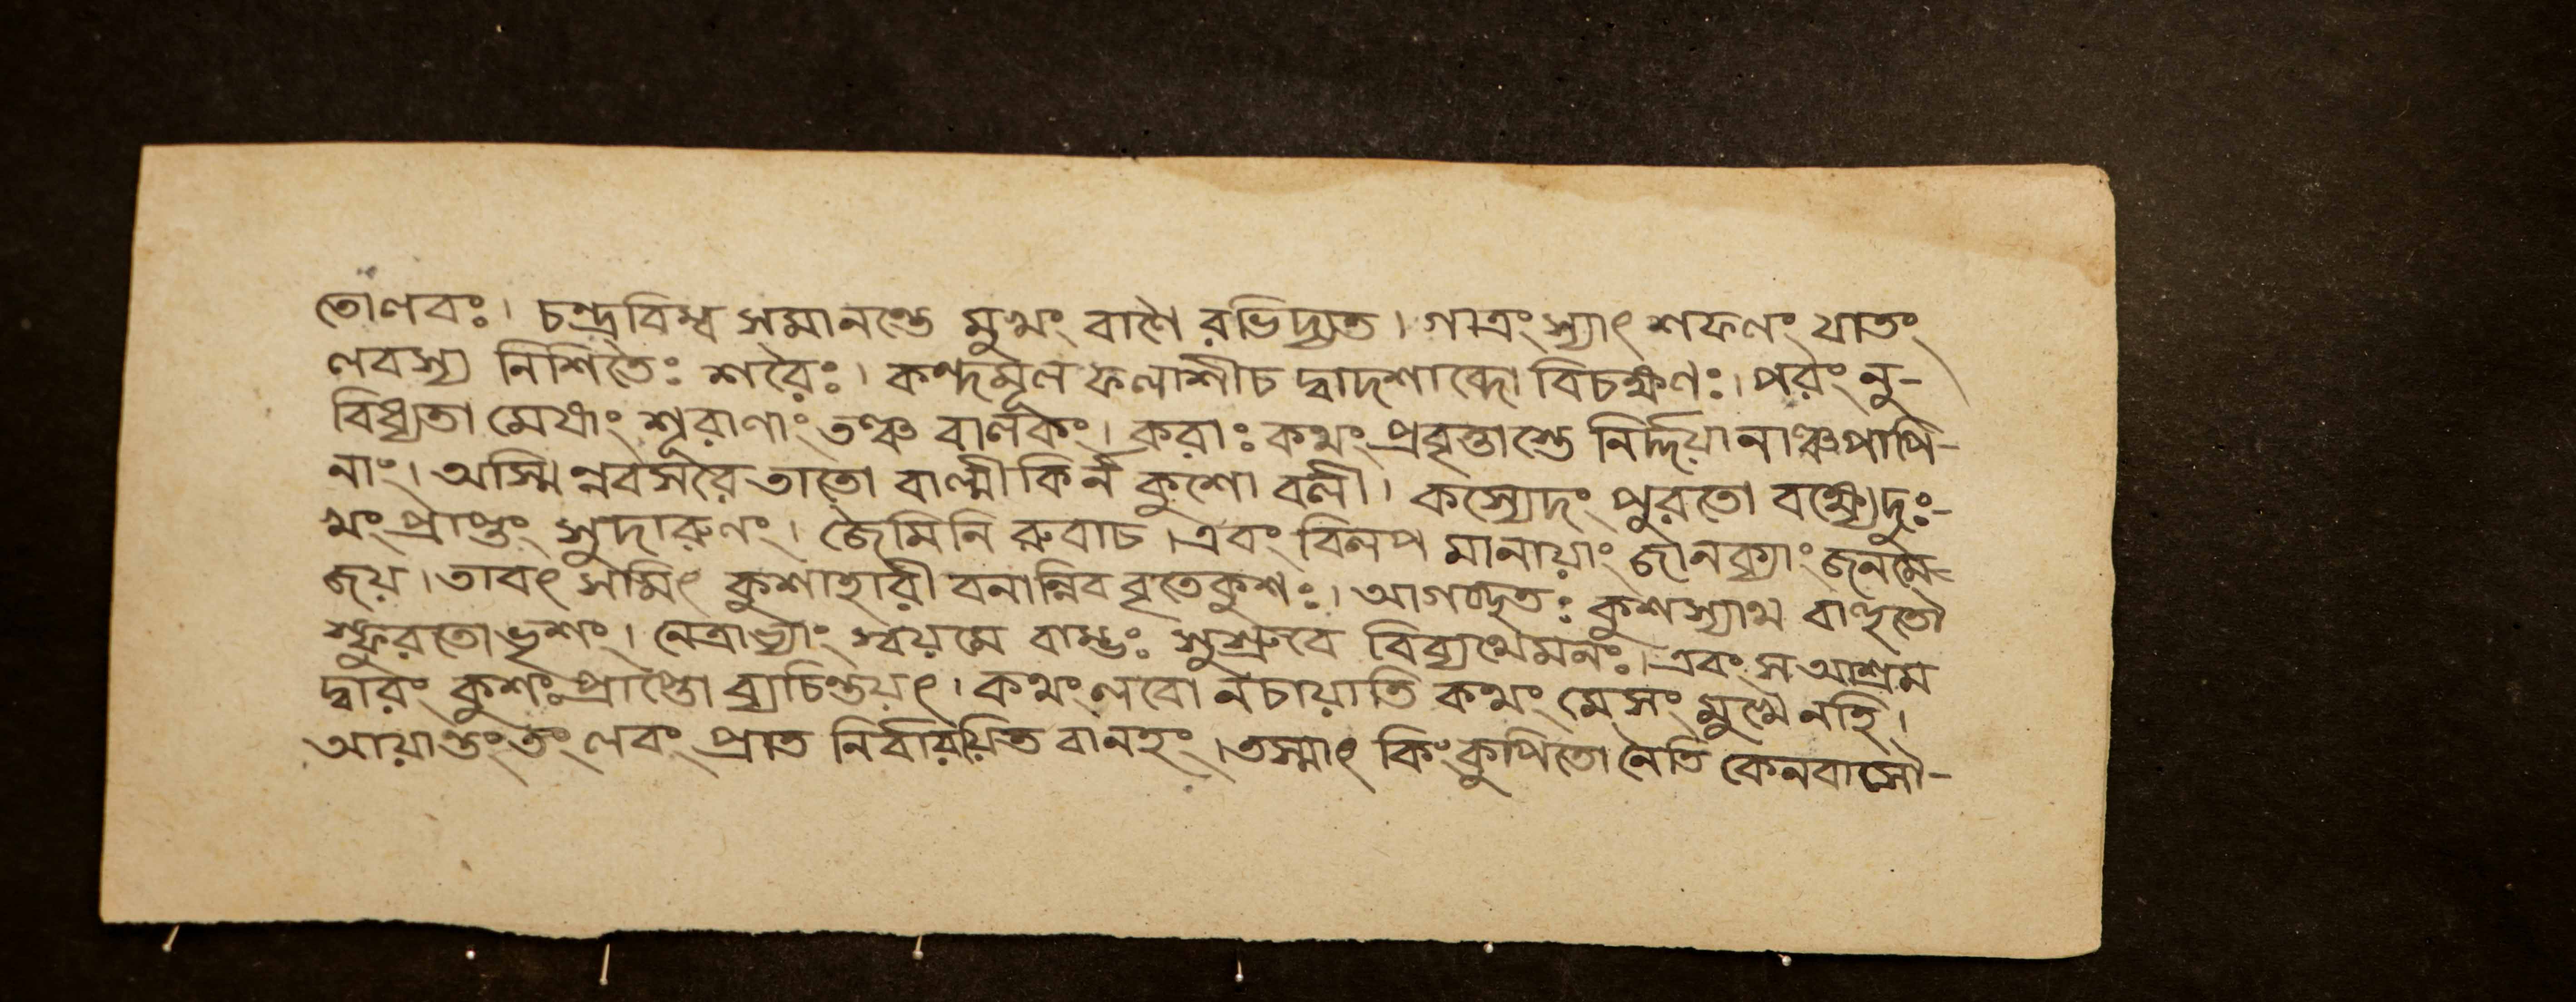 তোলবঃ। চন্দ্রবিম্ব সমানন্তে মুখং বাণৈ রভিদ্যুত। গাত্রং স্যাৎ শফলং যাতং
লবস্য নিশিতৈঃ শরৈঃ। কন্দমূল ফলাশীচ দ্বাদশাব্দো বিচক্ষণঃ। পরং নু-
বিধ্যতা মেষাং শূরাণাং তঞ্চ বালকং। করাঃ কথং প্রবৃত্তাস্তে নির্দ্দয়া নাঞ্চপাপি-
নাং। অস্মি ন্নবসরে তাতো বাল্মীকির্ন কুশো বলী। কস্যেদং পুরতো বক্ষ্যেদুঃ-
খং প্রাপ্তং সুদারুণং। জৈমিনি রুবাচ। এবং বিলপ মানায়াং জানক্যাং জনমে-
জয়। তাবৎ সমিৎ কুশাহারী বনান্নিব বৃতেকুশঃ। আগচ্ছতঃ কুশস্যাথ বাহুতৌ
স্ফুরতোভৃশং। নেত্রাভ্যাং স্বয়মে বাম্ভঃ সুশ্রুবে বিব্যথেমনঃ। এবং স আশ্রম
দ্বারং কুশঃ প্রাপ্তো ব্যচিন্তয়ৎ। কথং লবো নচায়াতি কথং মেসং মুখৈ নহি।
আয়ান্তংতং লবং প্রাত নির্বারয়িত বানহং। তস্মাৎ কিং কুপিতো নৈতি কেনবাসৌ-